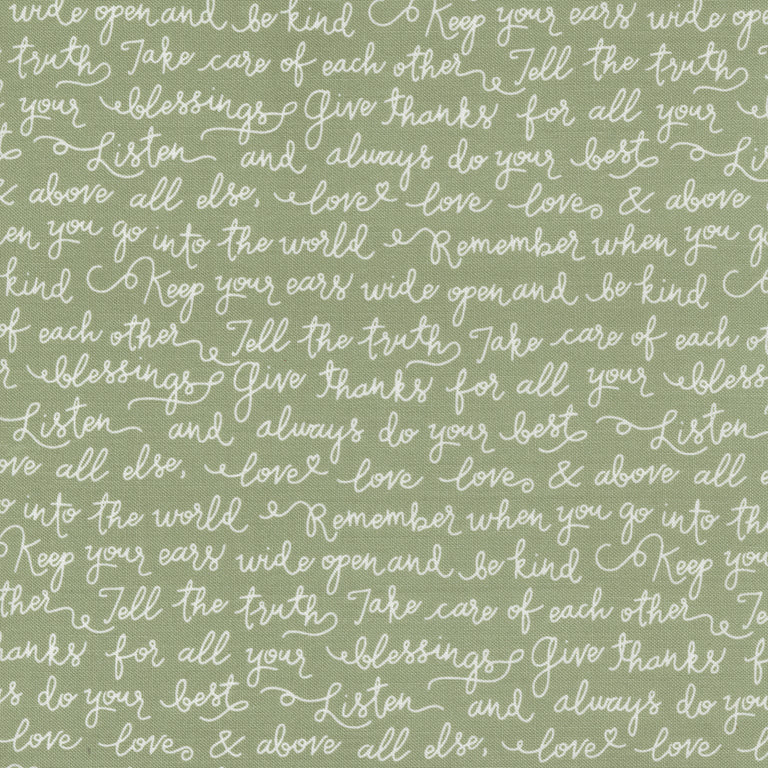 wide open and be kind Keep your ears wide ope
truth Take care of each other Tell the truth T
your blessings Give thanks for all your
Listen and always do your best Lis
& above all else, love love love & above
en you go into the world Remember when you go
kind Keep your ears wide open and be kind
of each other Tell the truth Take care of each ot
r blessings Give thanks for all your bless
Listen and always do your best Listen
ove all else, love love love & above all e
o into the world Remember when you go into th
Keep your ears wide open and be kind Keep you
ther Tell the truth Take care of each other Te
hanks for all your blessings Give thanks f
s do your best Listen and always do you
love love & above all else, love love l